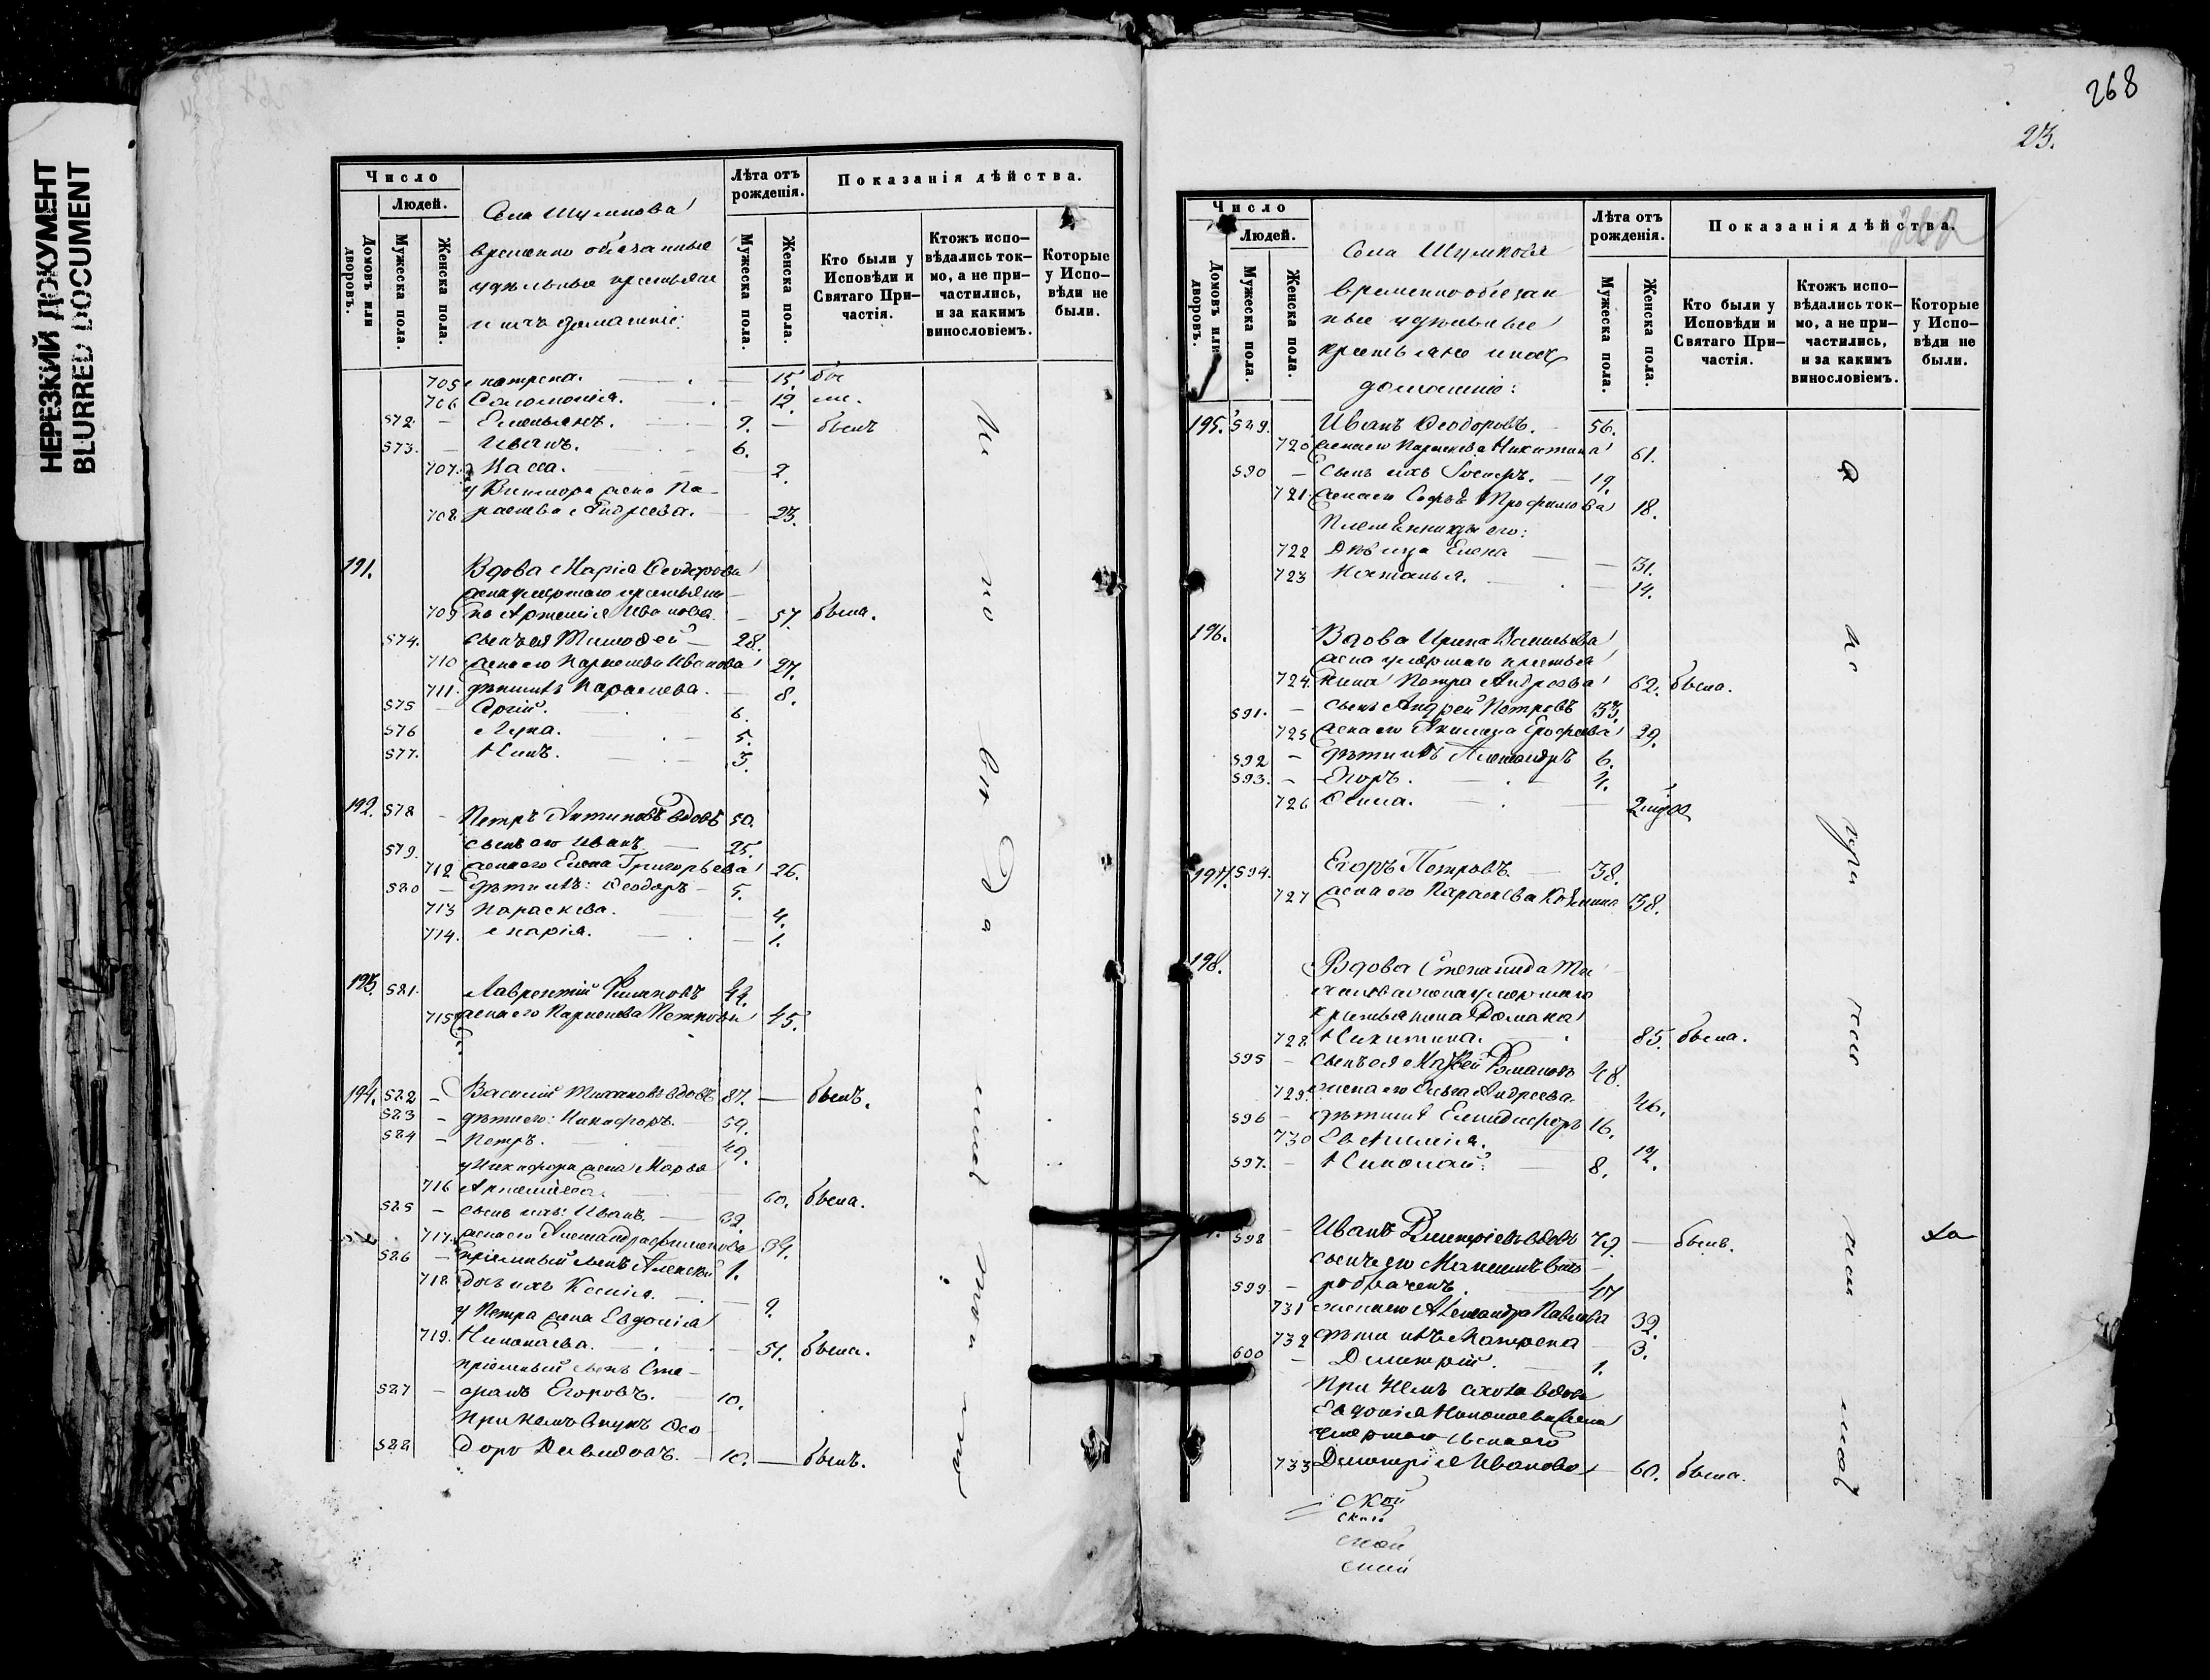 НЕРЕЗКИЙ ДОКУМЕНТ
BLURRED DOCUMENT
Число
Людей.
Домовъ или дворовъ.
Мужеска пола.
Женска пола.
Села Шумкова
временно обязанные
удѣльные крестьяне
и ихъ домашніе:
Лѣта отъ рожденія.
Мужеска пола.
Женска пола.
Показанія дѣйства.
Кто были у Исповѣди и Святаго Причастія.
Ктожъ исповѣдались токмо, а не причастились, и за какимъ винословіемъ.
Которые у Исповѣди не были.
705 Матрена. 15.
706 Соломонія. 12.
572 Емельянъ. 9. — былъ
573 Иванъ. 6.
707 2.
жена Па-
708 раскева Андреева. 23.
191. Вдова Марія Ѳеодорова
жена умершаго крестьяни-
709 на Артемія Иванова. 57. была.
574. сынъ ея Тимоѳей 28.
710 жена его Параскева Иванова 27.
711. дѣти ихъ Параскева. 8.
575 Сергій. 6.
576 Лука. 5.
577. 3.
192. 578 Петръ Антиповъ вдовъ 50.
579. сынъ его Иванъ. 25.
712 жена его Елена Григорьева 26.
580 дѣти ихъ: Ѳеодоръ 5.
713 Параскева. 4.
714. Марія. 1.
193. 581. Лаврентій 44.
715 жена его Параскева Петрова 45.
194. 582 Василій вдовъ 87. — былъ.
583 дѣти его: Никифоръ. 59.
584 Петръ. 49.
у Никифора жена Марѳа
716 60. была.
585 сынъ ихъ: Иванъ. 32.
717. жена его Александра 34.
586 пріемный сынъ Алексѣй 1.
718 дочь ихъ Ксенія. 9.
у Петра жена Евдокія
719. Николаева. 51. была.
пріемный сынъ Сте-
587 фанъ Егоровъ. 10.
При немъ внукъ Ѳео
588 доръ Давидовъ. 10. — былъ.
268
23.
Число
Людей.
Домовъ или дворовъ.
Мужеска пола.
Женска пола.
Села Шумкова
временнообязан
ные удѣльные
крестьяне и ихъ
домашніе:
Лѣта отъ рожденія.
Мужеска пола.
Женска пола.
Показанія дѣйства.
Кто были у Исповѣди и Святаго Причастія.
Ктожъ исповѣдались токмо, а не причастились, и за какимъ винословіемъ.
Которые у Исповѣди не были.
195. 589. Иванъ Ѳеодоровъ. 56.
720 жена его Параскева Никитина 61.
590 сынъ ихъ 19.
721. жена его Софья Трофимова 18.
Племянницы его:
722 Дѣвица Елена 31.
723 Наталья. 14.
196. Вдова Ирина Васильева
жена умершаго крестья
724. нина Петра Андреева 62. была.
591. сынъ Андрей Петровъ 33.
725 жена его Акилина Ерофеева 29.
592 дѣти ихъ Александръ 6.
593. Егоръ. 4.
726
197. 594. Егоръ Петровъ. 38.
727 жена его Параскева 38.
198. Вдова Степанида
жена умершаго
крестьянина Романа
728 Никитина. 85. была.
595 сынъ ея Матвей Романовъ 48.
729. жена его Ольга Андреева. 46.
596 дѣти ихъ Елпидифоръ 16.
730 Евѳимія. 12.
597. Николай. 8.
598 Иванъ Димитріевъ вдовъ 79. — былъ.
сынъ его Максимъ вто
599 робраченъ. 47
731 жена его Александра Павлова 32.
732 дѣти ихъ Матрена 3.
600 Димитрій. 1.
При немъ сноха вдова
Евдокія Николаева жена
умершаго сына его
733 Димитрія Иванова 60. была.
ской